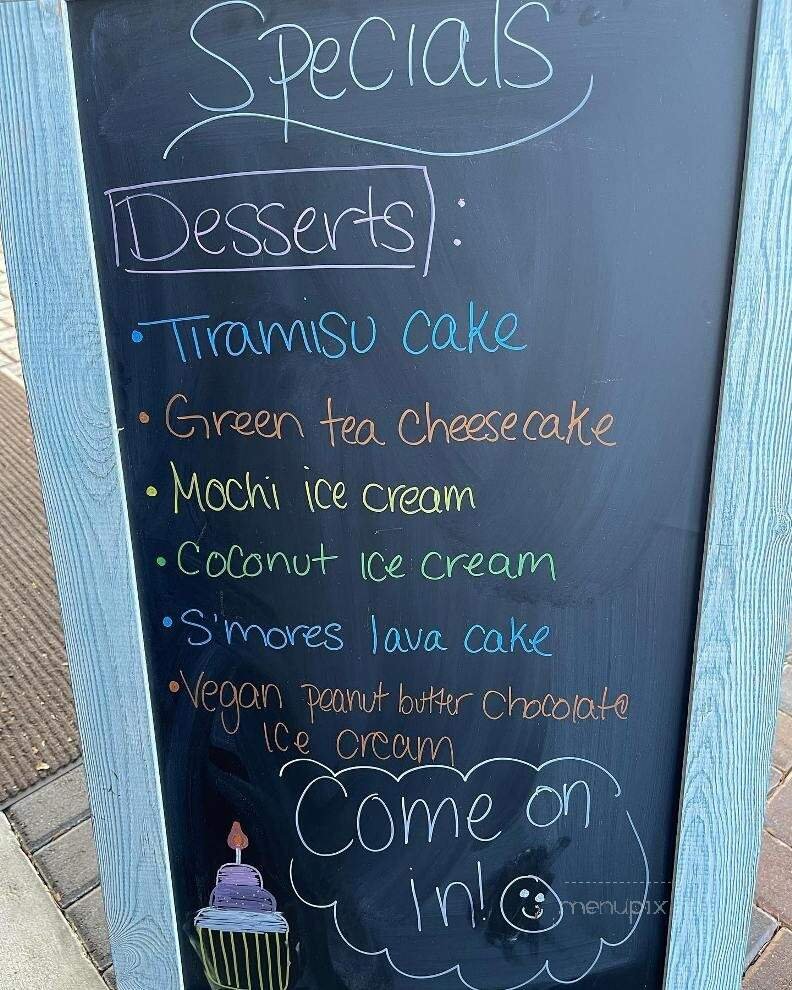 Specials
Desserts:
• Tiramisu cake
• Green tea cheesecake
• Mochi ice cream
• Coconut ice cream
• S'mores lava cake
• Vegan peanut butter chocolate
ice cream
Come on
in!
menupix